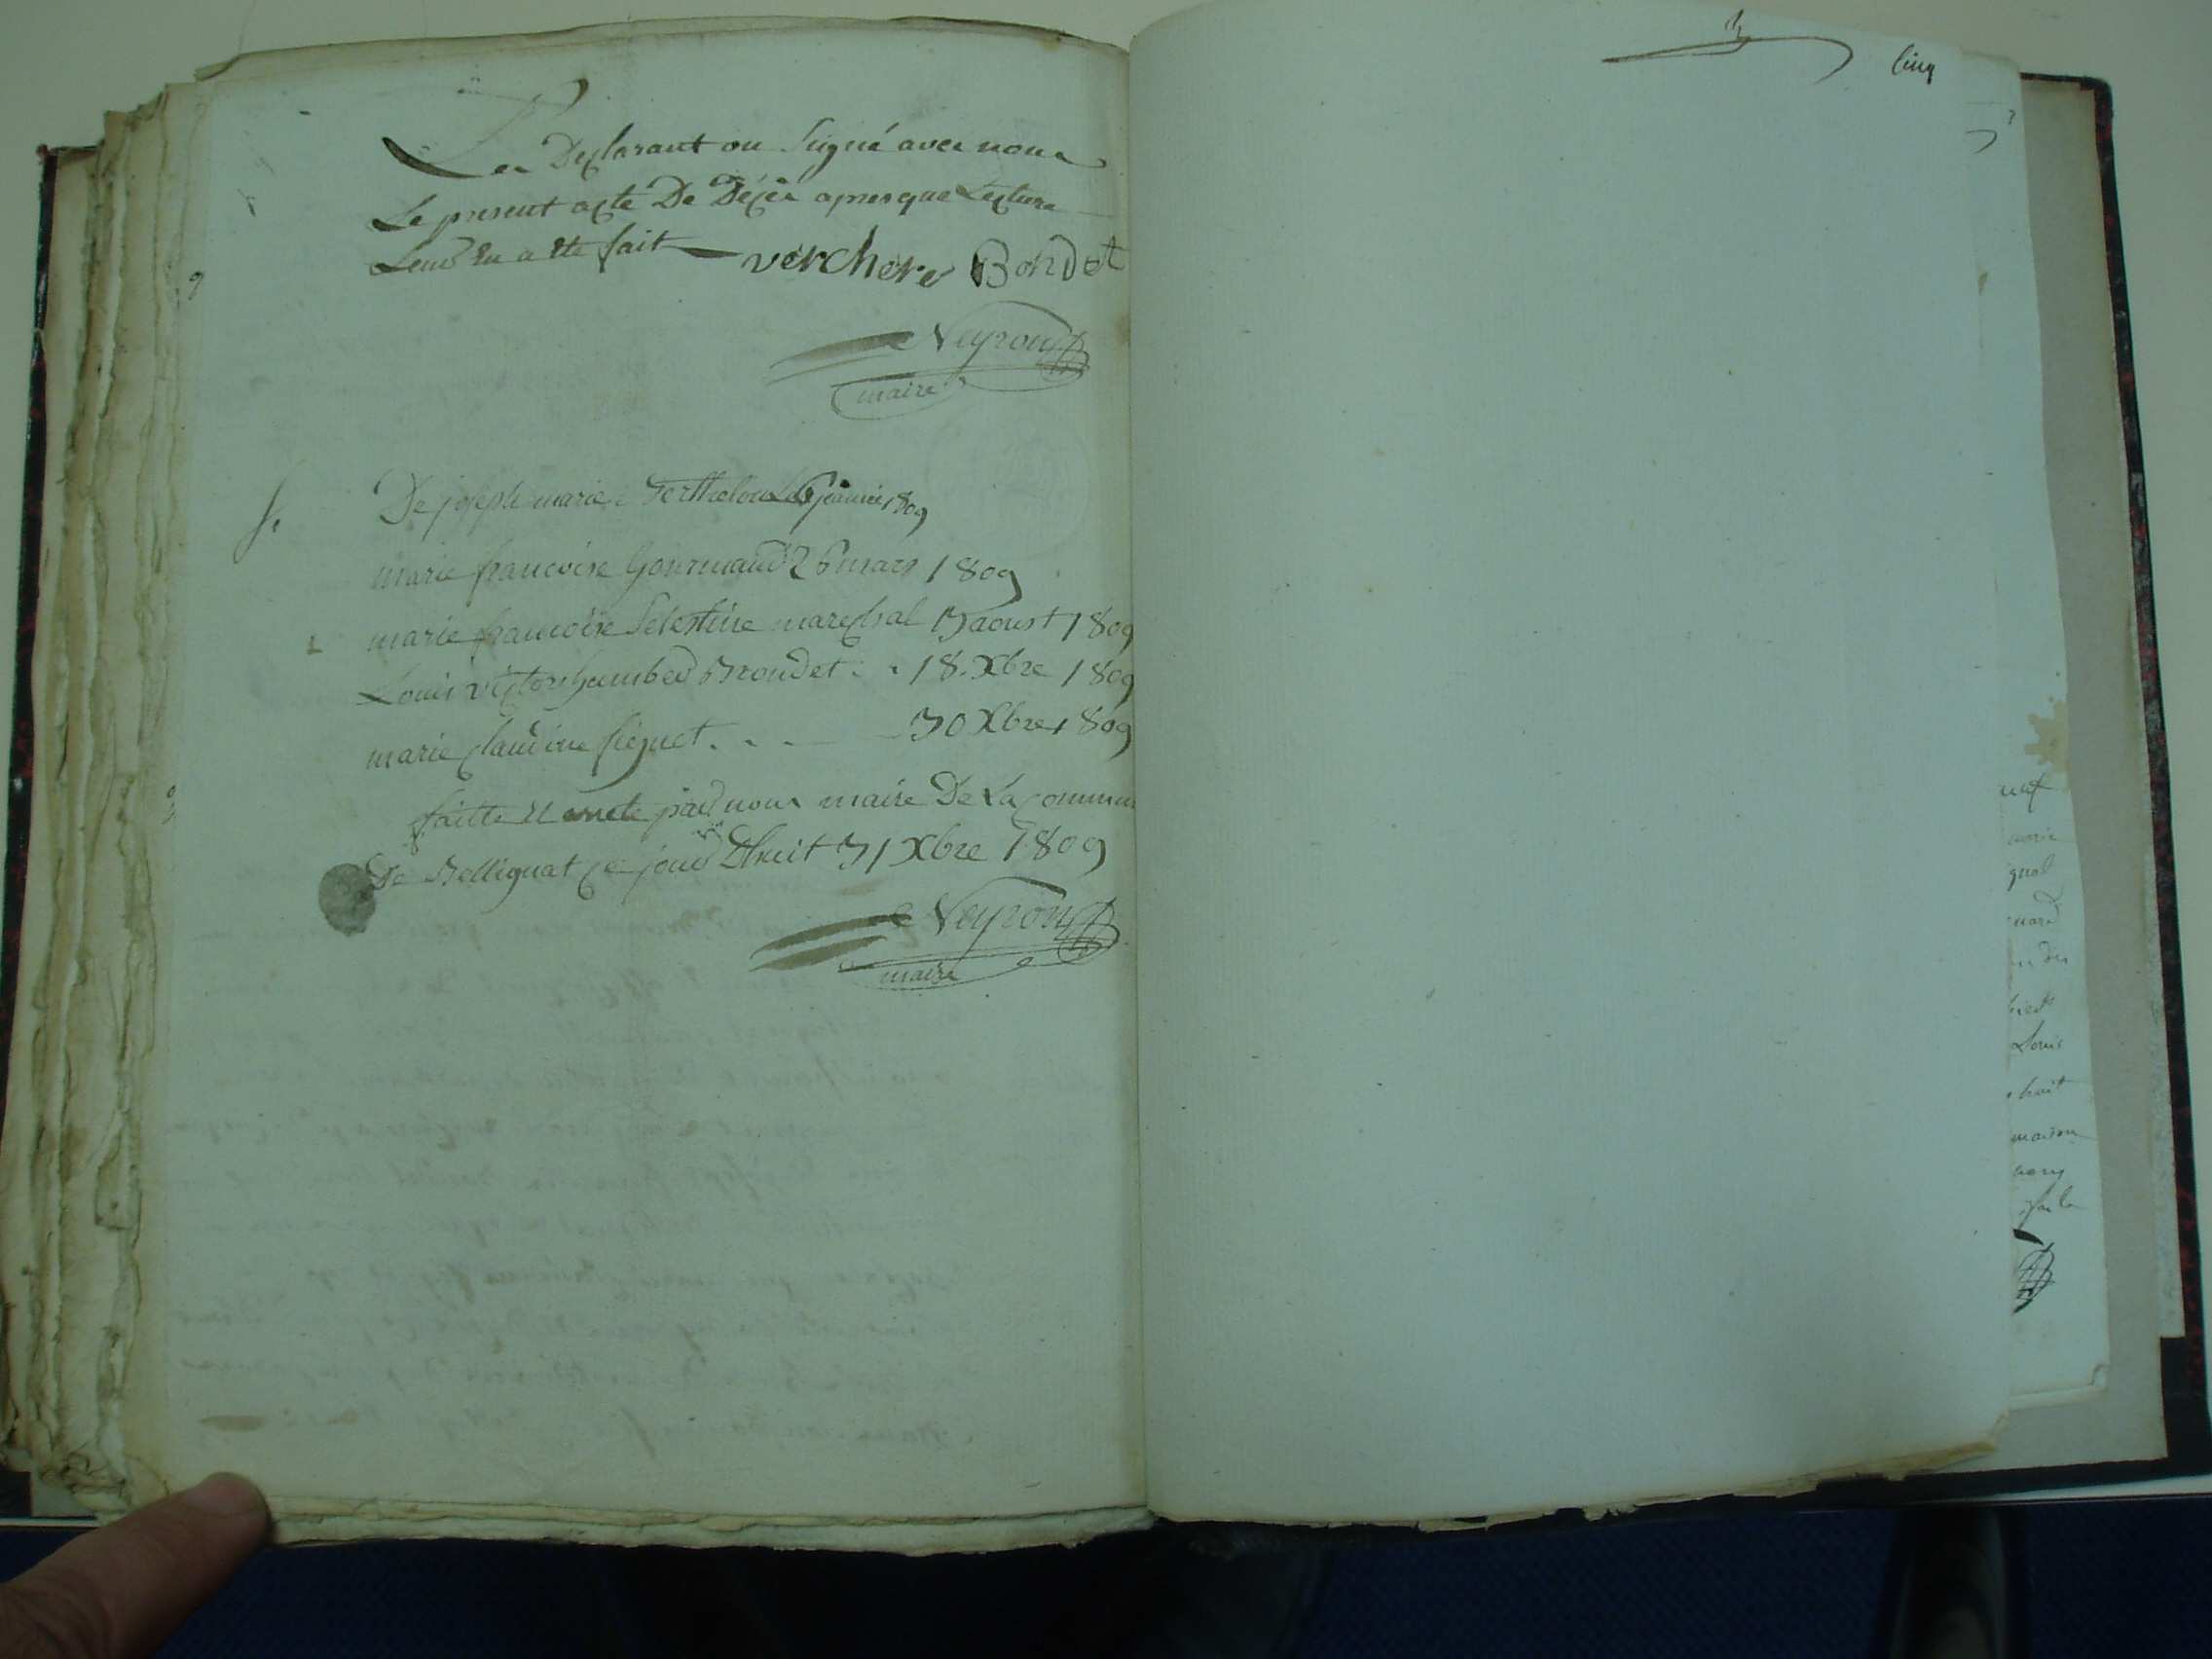 Les Declarant on Signé avec nous
Le present acte De Décès apres que Lecture
Leur en a ete fait verchere Bondet
Neyron
maire
De joseph marie Berthelon 6 janvier 1809
marie francoise Gourmand 26 mars 1809
marie francoise Selestine marechal 3 aoust 1809
Louis victor humber Brondet 18. Xbre 1809
marie claudine 30 Xbre 1809
faitte et arrete par nous maire De La commune
De Bellignat ce jour Dhuit 31 Xbre 1809
Neyron
maire
Cinq
Louis
huit
maison